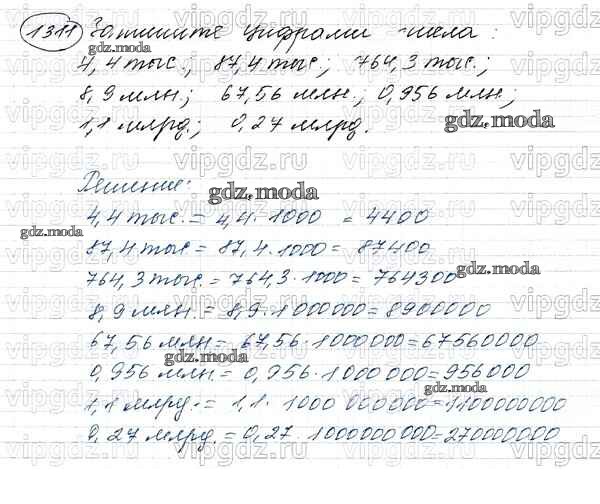 1311 Запишите цифрами числа:
4,4 тыс.; 87,4 тыс; 764,3 тыс.;
8,9 млн.; 67,56 млн.; 0,956 млн.;
1,1 млрд; 0,27 млрд.
Решение:
4,4 тыс. = 4,4 · 1000 = 4400
87,4 тыс = 87,4 · 1000 = 87400
764,3 тыс. = 764,3 · 1000 = 764300
8,9 млн. = 8,9 · 1000000 = 8900000
67,56 млн = 67,56 · 1000000 = 67560000
0,956 млн. = 0,956 · 1000000 = 956000
1,1 млрд. = 1,1 · 1000 000000 = 1100000000
0,27 млрд. = 0,27 · 1000000000 = 270000000
gdz.moda
gdz.moda
gdz.moda
gdz.moda
gdz.moda
gdz.moda
gdz.moda
vipgdz.ru